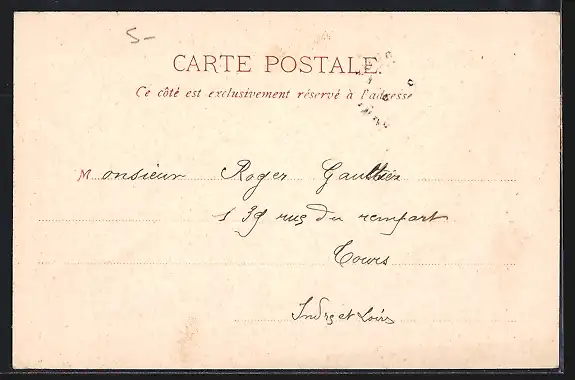 5-
CARTE POSTALE.
Ce côté est exclusivement réservé à l'adresse
Monsieur Roger Gaultier
139 rue du rempart
Tours
Indre et Loire